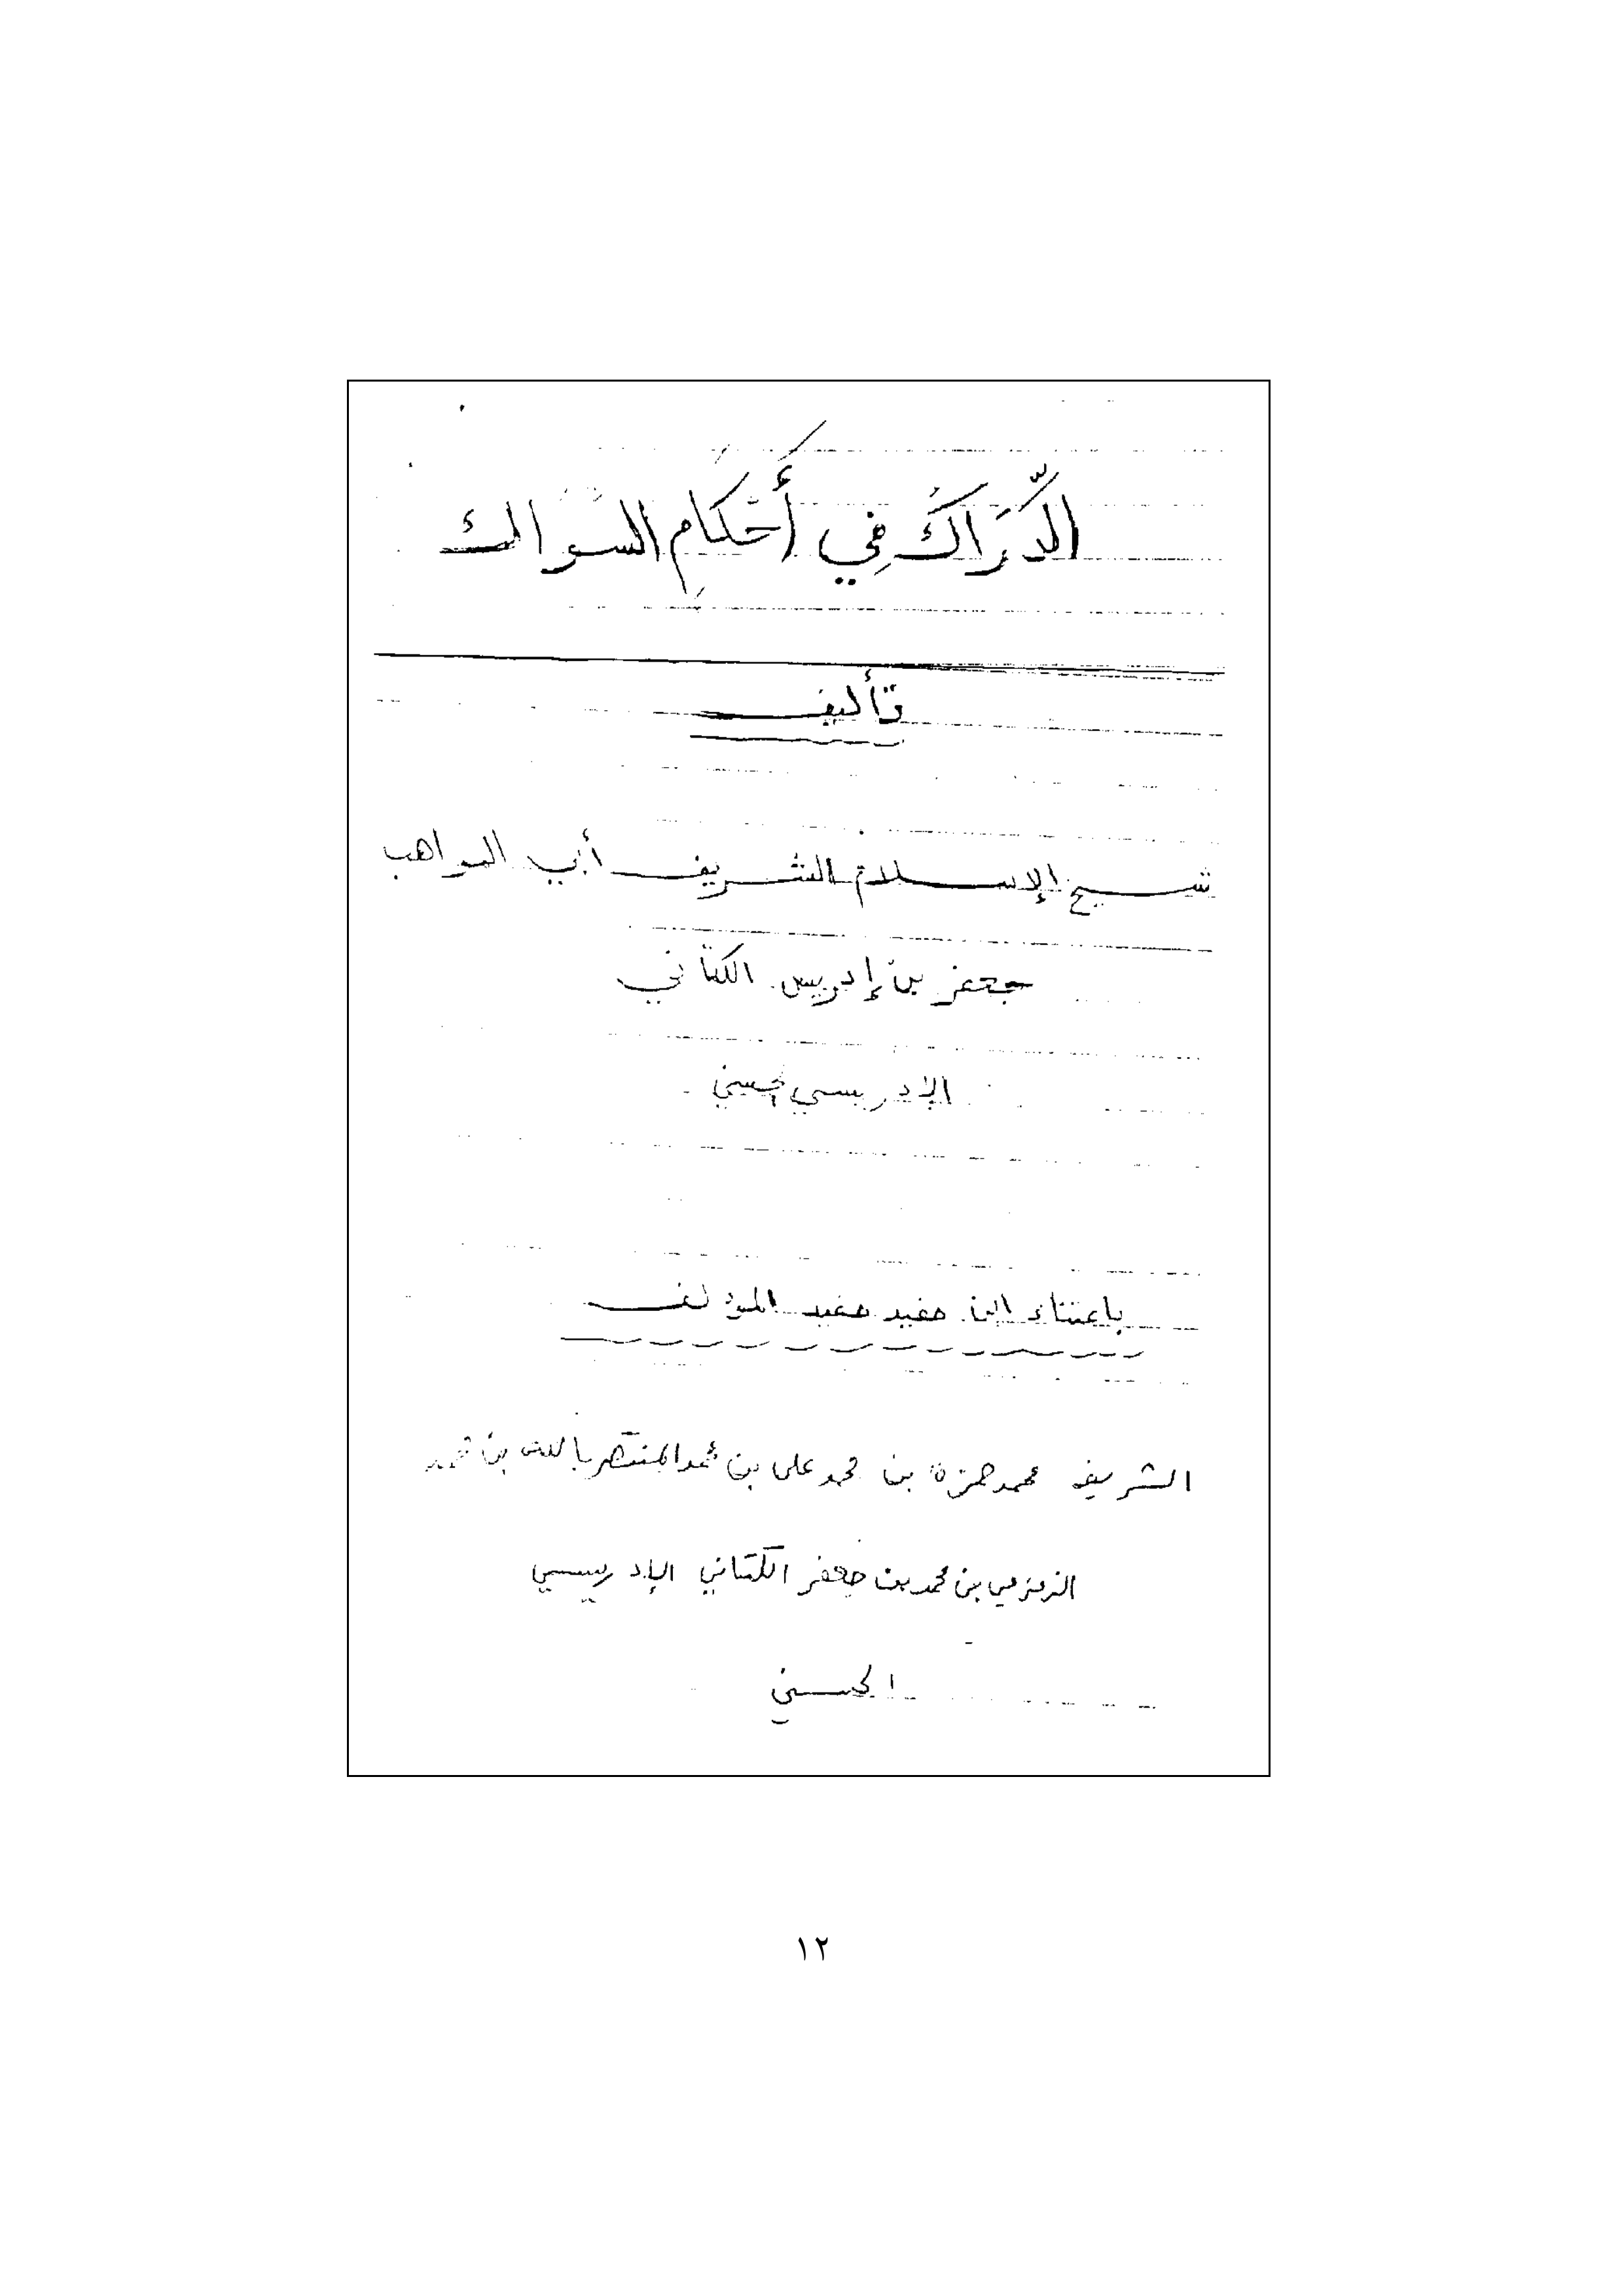 الدَّرَاكَ فِي أَحْكَامِ السواك
تأليف
شيخ الإسلام الشريف أبي المواهب
جعفر بن إدريس الكتاني
الإدريسي الحسني
باعتناء ابن حفيد حفيد المؤلف
الشريف محمد حمزة بن محمد علي بن محمد المنتصر بالله بن محمد
الزمزمي بن محمد بن جعفر الكتاني الإدريسي
الحسني
١٢